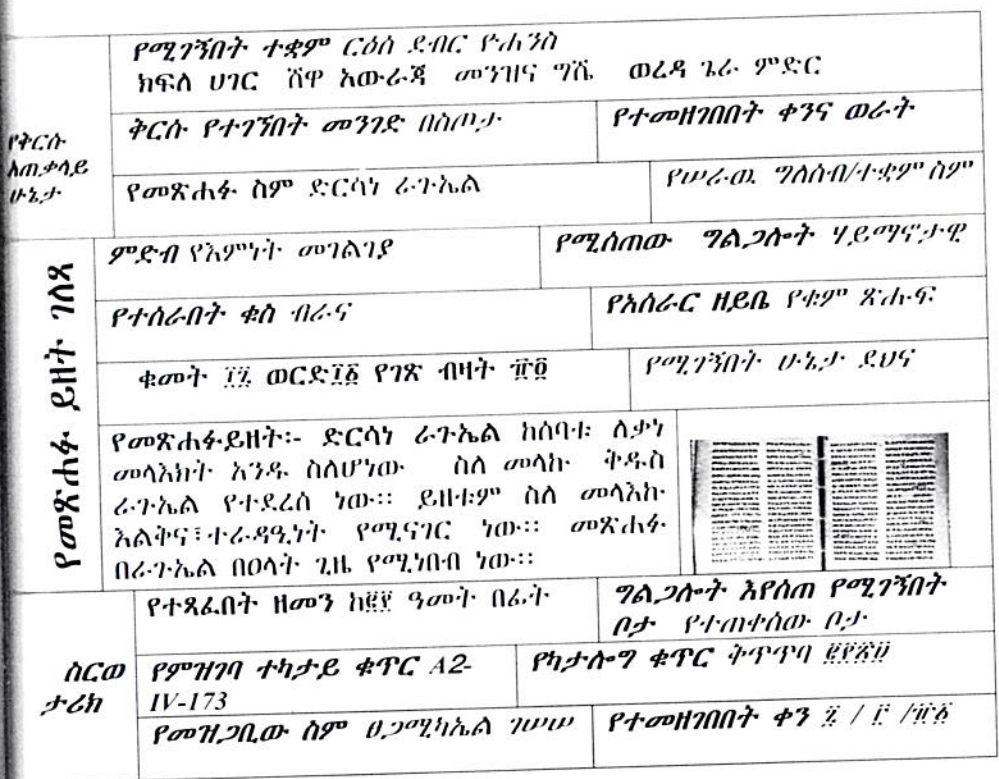 የሚገኝበት ተቋም ርዕሰ ደብር ዮሐንስ
ክፍለ ሀገር ሸዋ አውራጃ መንዝና ግሼ ወረዳ ጌራ ምድር
የቅርሱ
አጠቃላይ
ሁኔታ
ቅርሱ የተገኘበት መንገድ በስጦታ
የተመዘገበበት ቀንና ወራት
የመጽሐፉ ስም ድርሳነ ራጉኤል
የሠራዉ ግለሰብ/ተቋም ስም
የመጽሐፉ ይዘት ገለጻ
ምድብ የእምነት መገልገያ
የሚሰጠው ግልጋሎት ሃይማኖታዊ
የተሰራበት ቁስ ብራና
የአሰራር ዘይቤ የቁም ጽሑፍ
ቁመት ፲፯ ወርድ፲፭ የገጽ ብዛት
የሚገኝበት ሁኔታ ደህና
የመጽሐፉ ይዘት፡- ድርሳነ ራጉኤል ከሰባቱ ሊቃነ
መላእክት አንዱ ስለሆነው ስለ መላኩ ቅዱስ
ራጉኤል የተደረሰ ነው፡፡ ይዘቱም ስለ መላእኩ
እልቅና፣ተራዳዒነት የሚናገር ነው፡፡ መጽሐፉ
በራጉኤል በዐላት ጊዜ የሚነበብ ነው፡፡
ስርወ
ታሪክ
የተጻፈበት ዘመን ዓመት በፊት
ግልጋሎት እየሰጠ የሚገኝበት
ቦታ የተጠቀሰው ቦታ
የምዝገባ ተከታይ ቁጥር A2-
IV-173
የካታሎግ ቁጥር ቅጥጥባ
የመዝጋቢው ስም ፀጋሚካኤል ገሠሠ
የተመዘገበበት ቀን